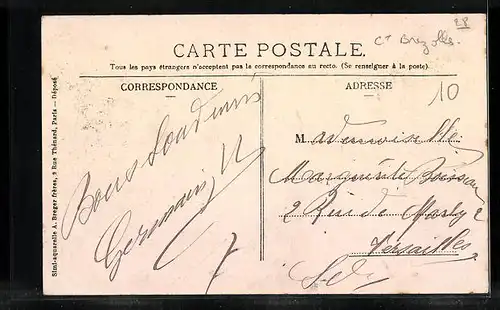 28
Ct Brezolles.
CARTE POSTALE
Tous les pays étrangers n'acceptent pas la correspondance au recto. (Se renseigner à la poste).
CORRESPONDANCE
ADRESSE
10
Bons Souvenirs
Germain
M. ademoiselle
Marguerite Boisseau
2 Rue de Marly 2
Versailles
S et O
Simi-aquarelle A. Breger frères, 9 Rue Thénard, Paris — Déposé